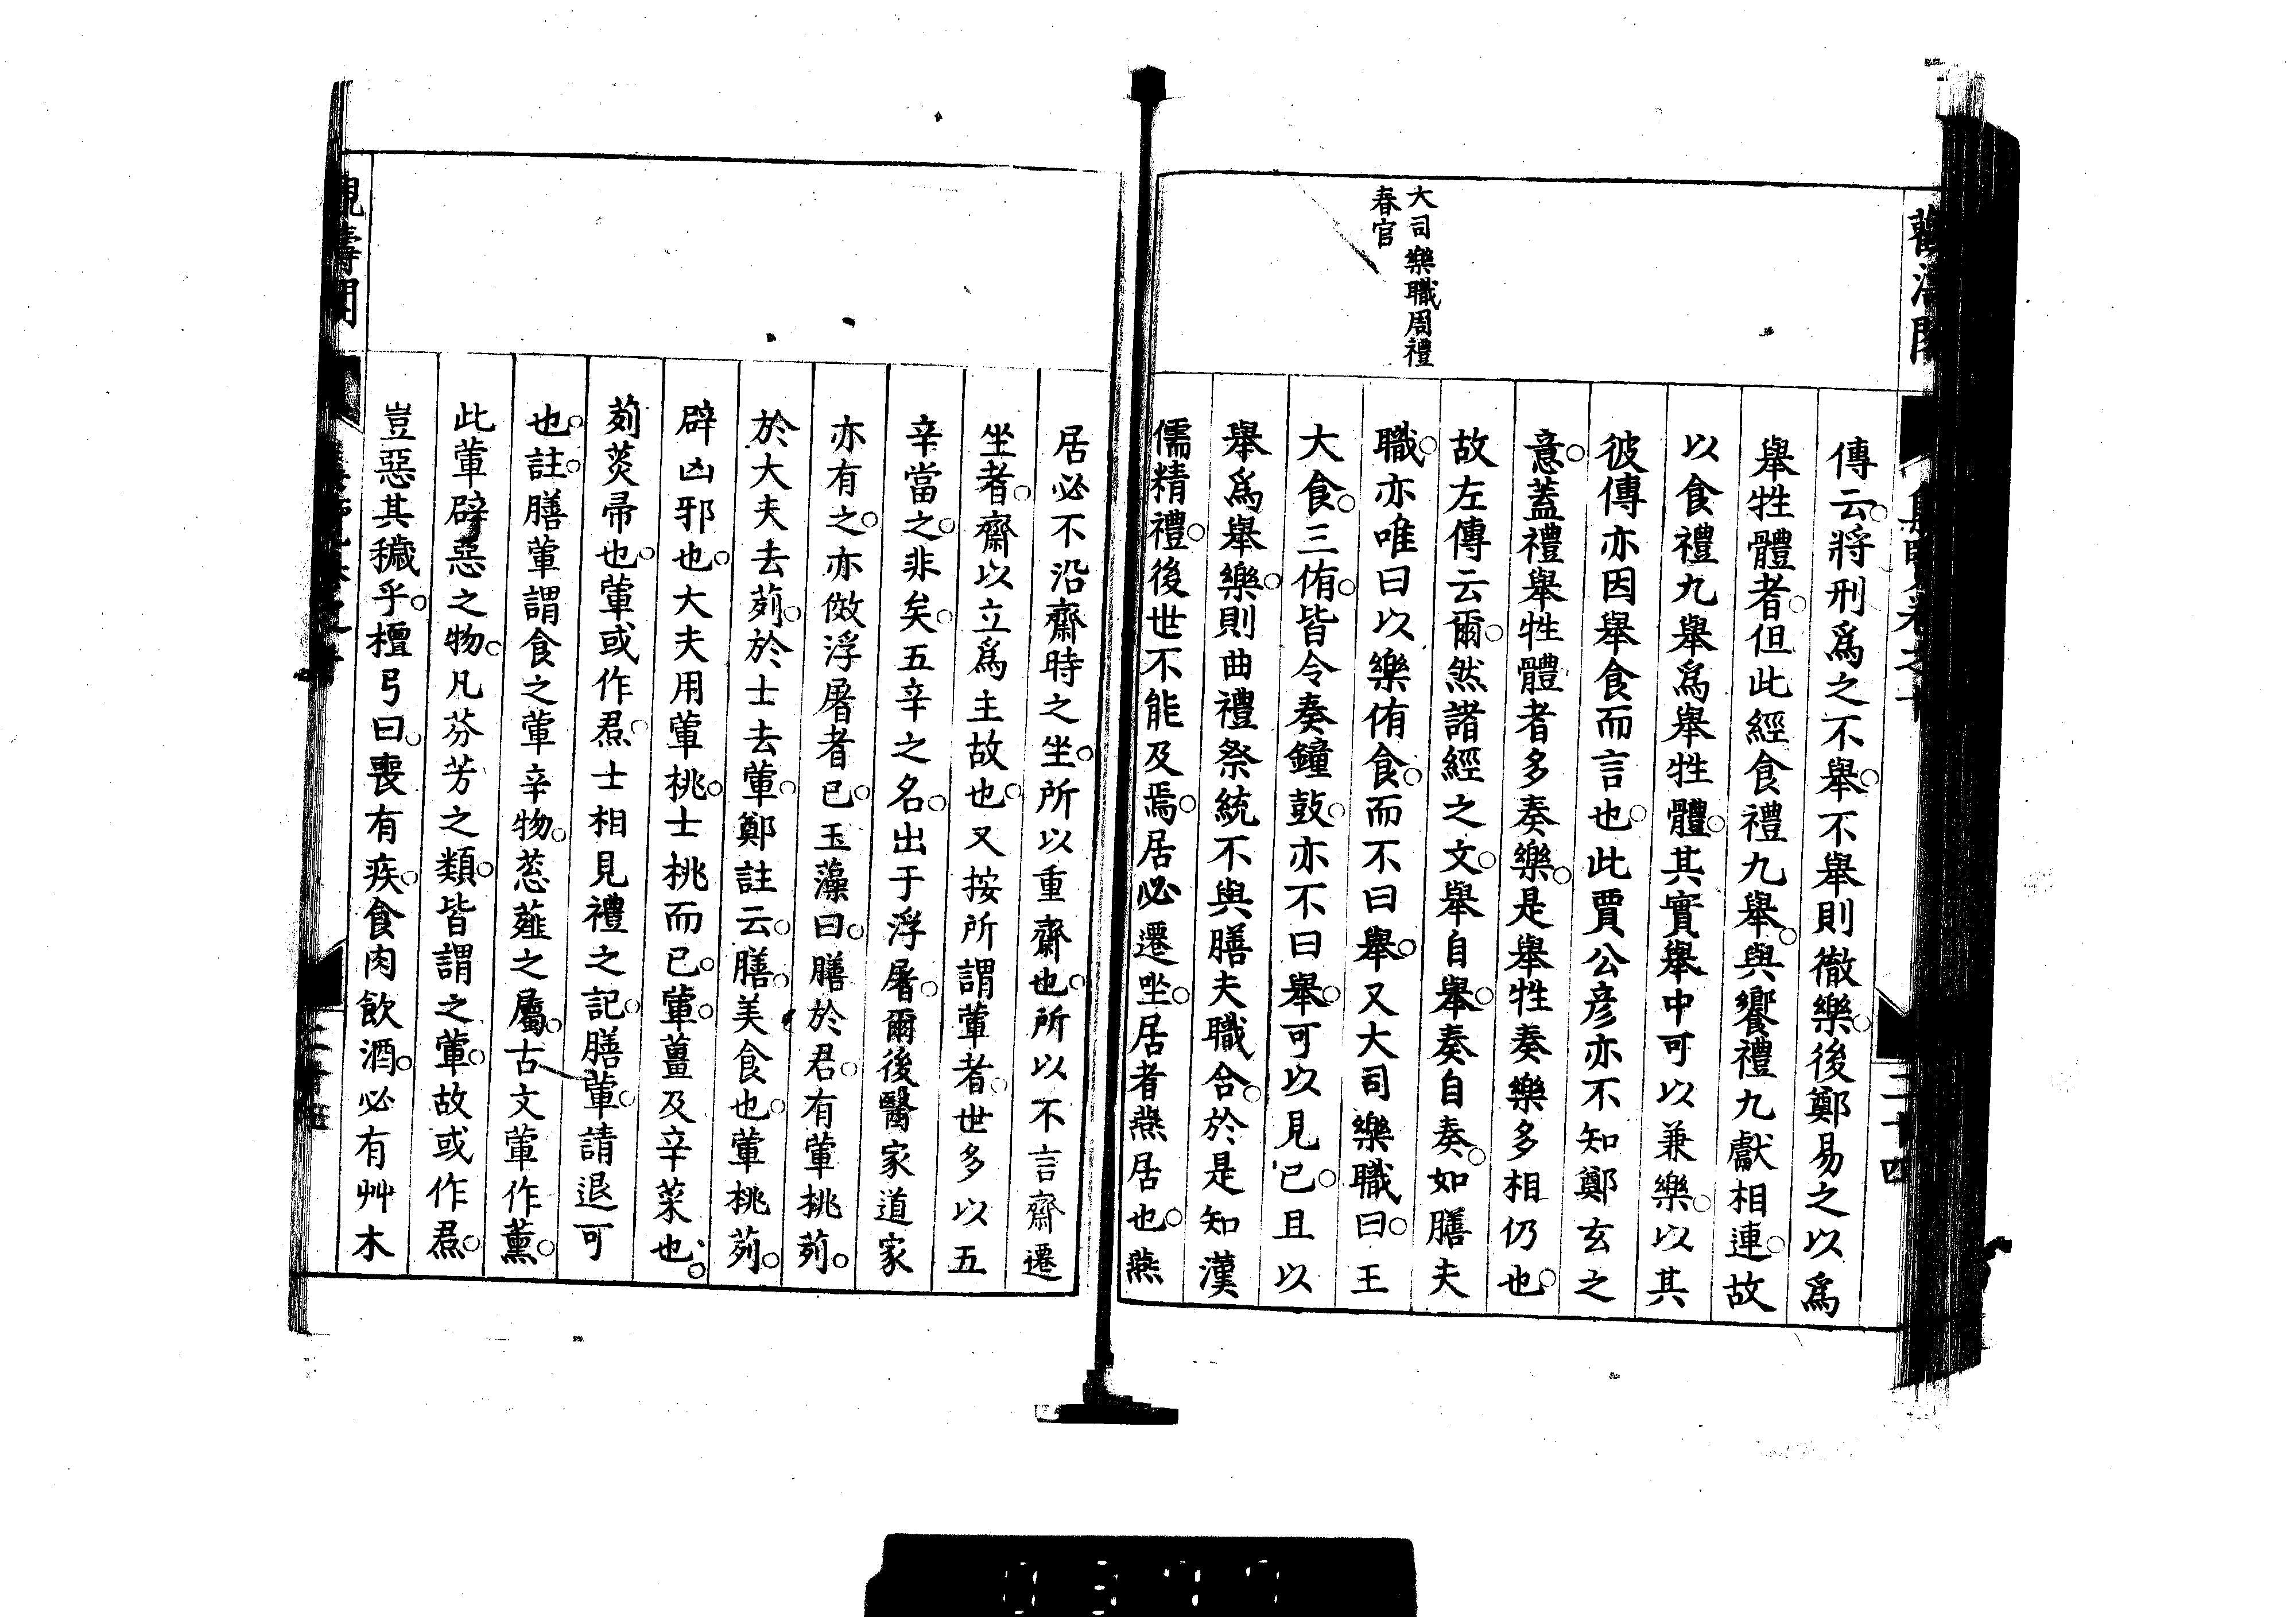 大司樂職周禮
春官
傳云。將刑爲之不舉。不舉則徹樂。後鄭易之以爲
舉牲體者。但此經食禮九舉。與饗禮九獻相連。故
以食禮九舉爲舉牲體。其實舉中可以兼樂。以其
彼傳亦因舉食而言也。此賈公彦亦不知鄭玄之
意。蓋禮舉牲體者多奏樂。是舉牲奏樂多相仍也。
故左傳云爾。然諸經之文。舉自舉。奏自奏。如膳夫
職。亦唯曰以樂侑食。而不曰舉。又大司樂職曰。王
大食。三侑。皆令奏鐘鼓。亦不曰舉。可以見已。且以
舉爲舉樂。則曲禮祭統不與膳夫職合。於是知漢
儒精禮。後世不能及焉。居必遷坐。居者燕居也。燕
居必不沿齋時之坐。所以重齋也。所以不言齋遷
坐者。齋以立爲主故也。又按所謂葷者。世多以五
辛當之。非矣。五辛之名。出于浮屠。爾後醫家道家
亦有之。亦倣浮屠者已。玉藻曰。膳於君。有葷桃茢。
於大夫去茢。於士去葷。鄭註云。膳。美食也。葷桃茢。
辟凶邪也。大夫用葷桃。士桃而已。葷。薑及辛菜也。
茢菼帚也。葷或作焄。士相見禮之記。膳葷。請退可
也。註。膳葷謂食之葷辛物。葱薤之屬。古文葷作薰。
此葷辟惡之物。凡芬芳之類。皆謂之葷。故或作焄。
豈惡其穢乎。檀弓曰。喪有疾。食肉飲酒。必有艸木